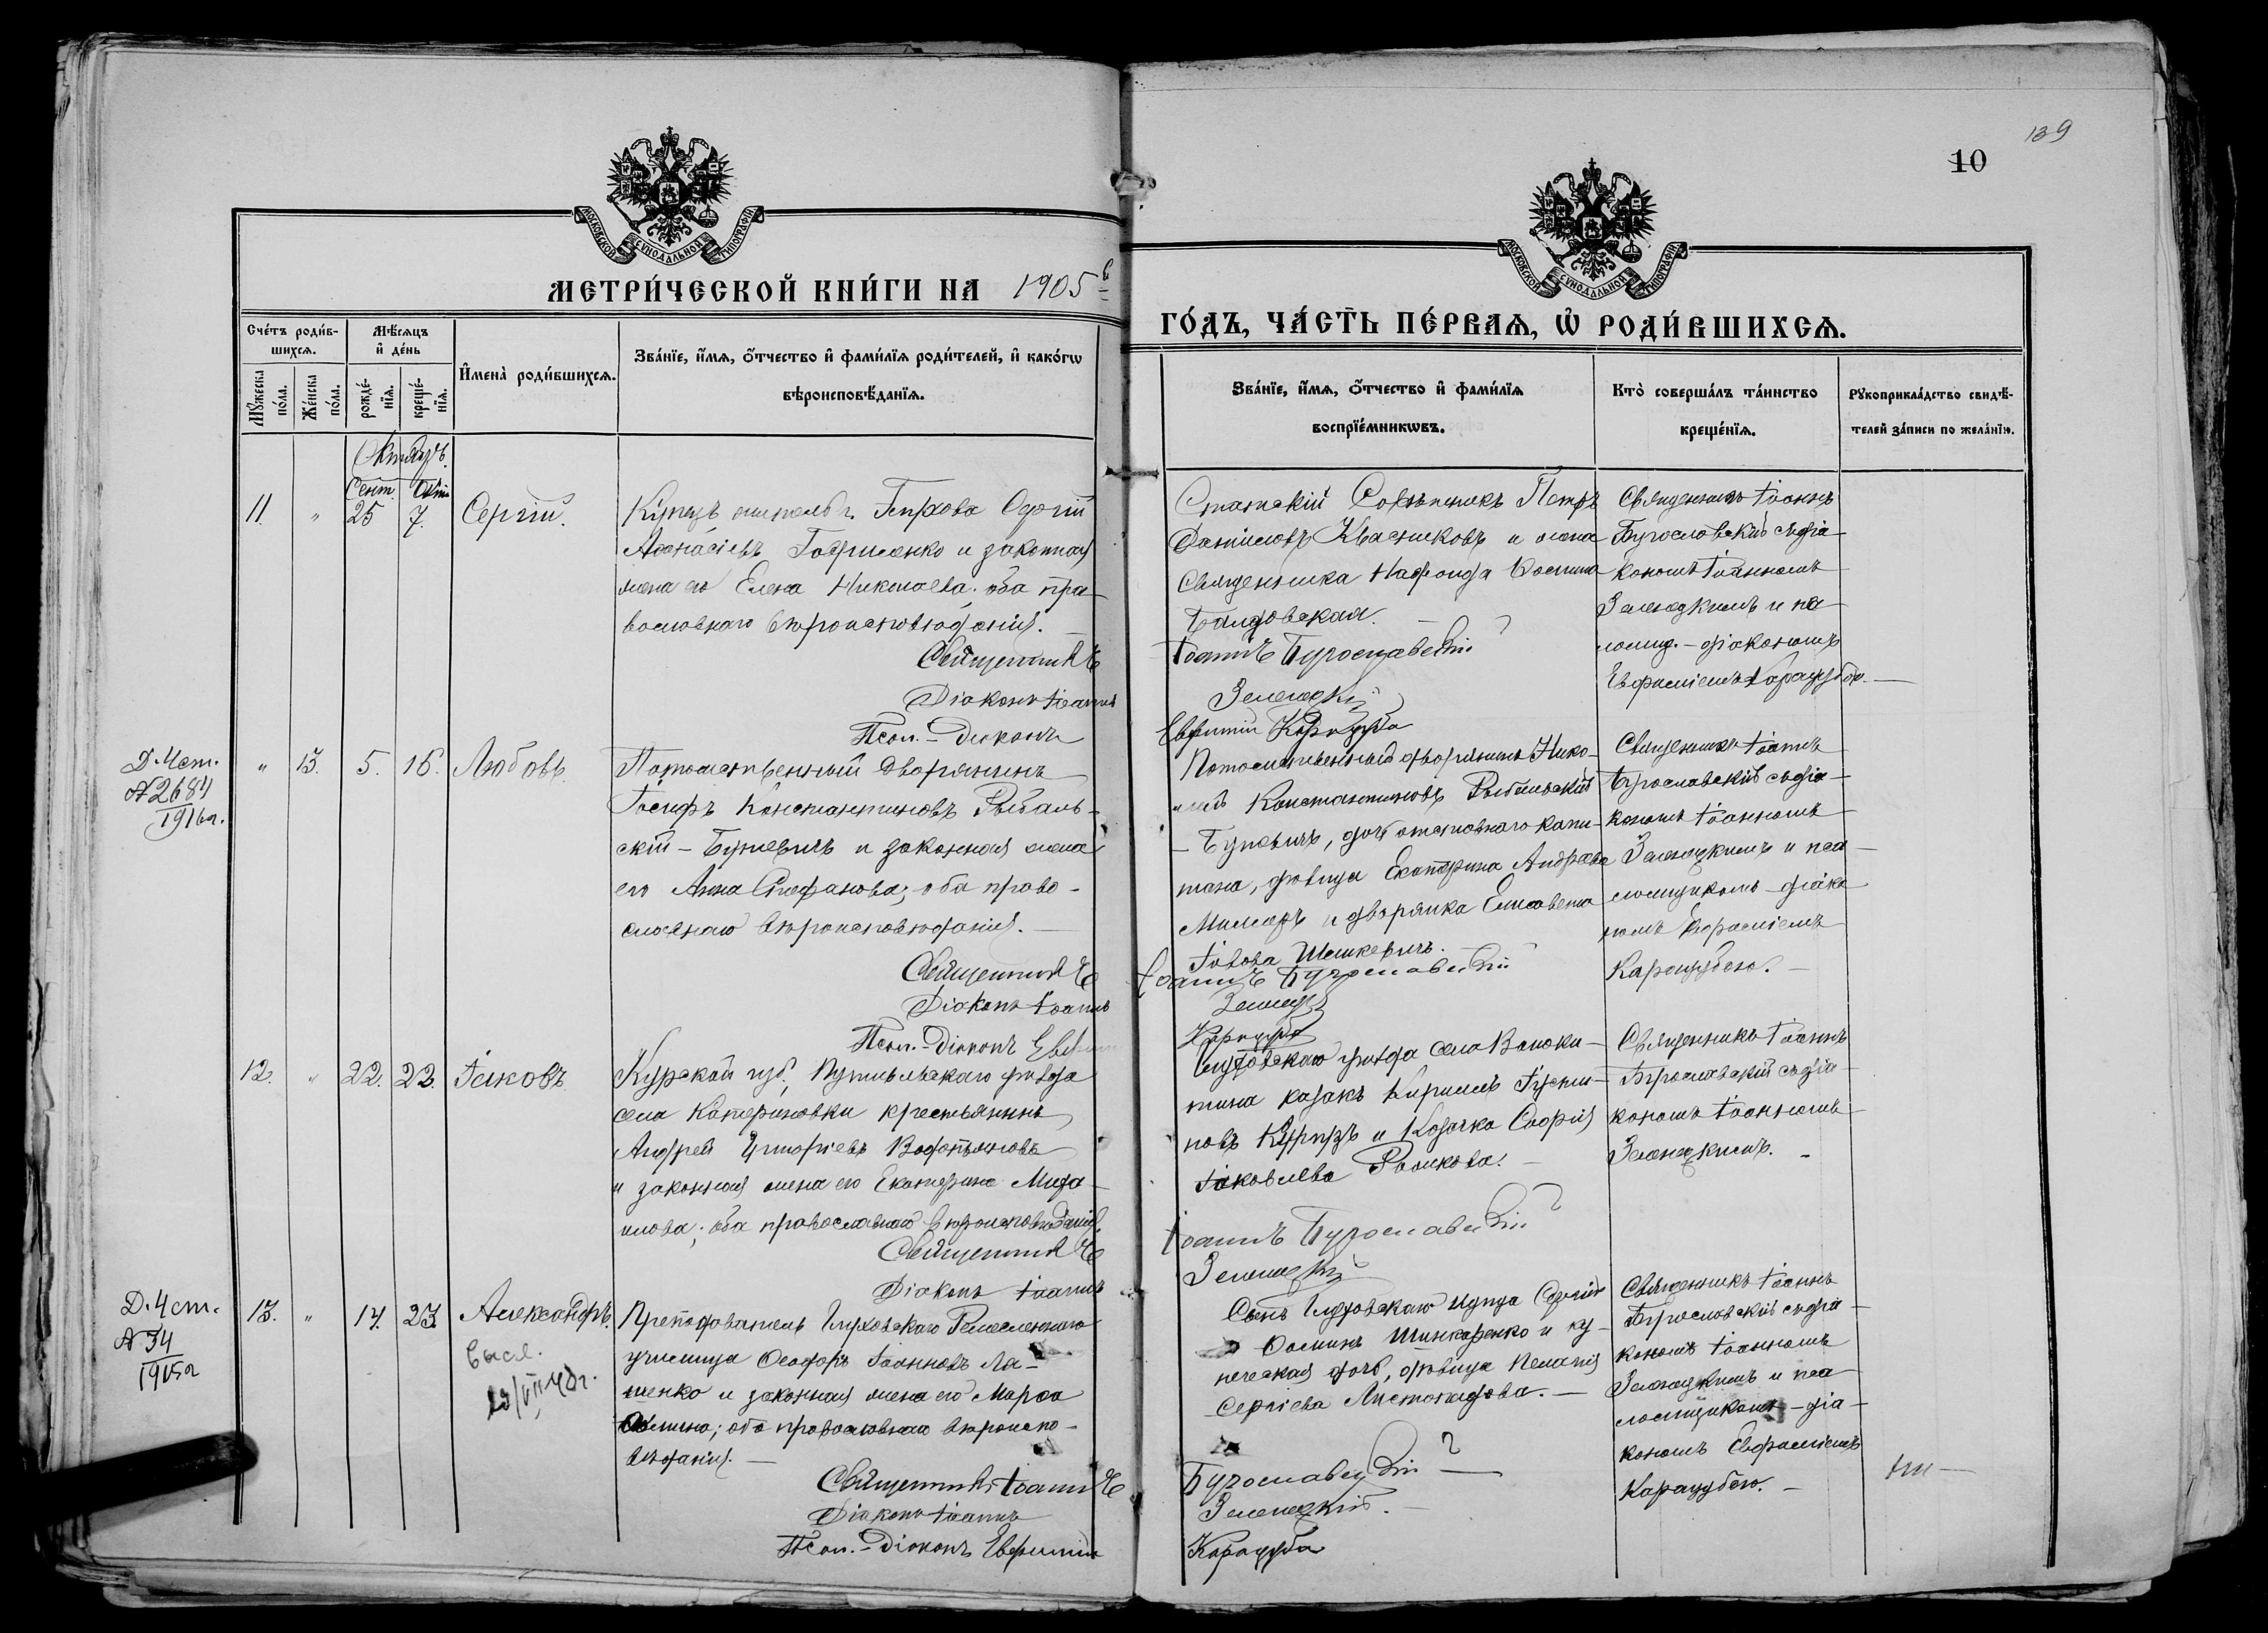 139
10
МОСКОВСКОЙ СѴНОДАЛЬНОЙ ТИПОГРАФІИ
МОСКОВСКОЙ СѴНОДАЛЬНОЙ ТИПОГРАФІИ
МЕТРИ́ЧЕСКОЙ КНИ́ГИ НА 1905й
ГО́ДЪ, ЧА́СТЬ ПЕ́РВАЯ, Ѡ РОДИ́ВШИХСЯ.
Сче́тъ роди́в-
шихся.
Мѣ́сяцъ
и҆ де́нь
Мꙋ́жеска
по́ла.
Же́нска
по́ла.
рожде́-
нїя.
креще́-
нїя.
И҆мена̀ роди́вшихся.
Зва́нїе, и҆́мя, ѻ҆́тчество и҆ фами́лїя роди́телей, и҆ како́гѡ
вѣроисповѣ́данїя.
Зва́нїе, и҆́мя, ѻ҆́тчество и҆ фами́лїя
воспрїе́мникѡвъ.
Кто̀ соверша́лъ та́инство
креще́нїя.
Рꙋкоприкла́дство свидѣ́-
телей за́писи по жела́нїю.
Октябрь.
Сент. Окт.
11. " 25 7. Сергій.
Купецъ г. Глухова Сергій
Аѳанасіевъ Гавриленко и законная
жена его Елена Николаева; оба пра-
вославнаго вѣроисповѣданія.
Священникъ
Діаконъ Іоаннъ
Псал.-Діаконъ
Статскій Совѣтникъ Петръ
Даніиловъ Квасниковъ и жена
священника
Іоаннъ Бугославскій
Зеленецкій
Евфимій Карацуба
Священникъ Іоаннъ
Бугославскій съ діа-
кономъ Іоанномъ
Зеленецкимъ и пса-
ломщ.-діакономъ
Евфиміемъ Карацубою.
Д. Чет.
№ 2684
1916 г.
" 15. 5. 16. Любовь.
Потомственный дворянинъ
Іосифъ Константиновъ Рыбаль-
скій-Бутевичъ и законная жена
его Анна Стефанова; оба право-
славнаго вѣроисповѣданія.
Священникъ
Діаконъ Іоаннъ
Псал.-Діаконъ
Потомственный дворянинъ Нико-
лай Константиновъ Рыбальскій
-Бутевичъ, дочь отставного капи-
тана, дѣвица Екатерина Андреева
Миллеръ и дворянка Елисавета
Іовова Шешкевичъ.
Іоаннъ Бугославскій
Зеленецкій
Карацуба
Священникъ Іоаннъ
Бугославскій съ діа-
кономъ Іоанномъ
Зеленецкимъ и пса-
ломщикомъ-діако-
номъ Евфиміемъ
Карацубою.
12. " 22. 22. Іаковъ
Курской губ., Путивльскаго уѣзда
села Катериновки крестьянинъ
Андрей Григоріевъ Водопьяновъ
и законная жена его Екатерина Миха-
илова; оба православнаго вѣроисповѣданія.
Священникъ
Діаконъ Іоаннъ
Глуховскаго уѣзда села
казакъ Кириллъ Іусти-
новъ и Козачка Софія
Іаковлева
Іоаннъ Бугославскій
Зеленецкій
Священникъ Іоаннъ
Бугославскій съ діа-
кономъ Іоанномъ
Зеленецкимъ.
Д. Чет.
№ 34
1915 г
13. " 14. 23. Александръ.
Высл.
Преподаватель Глуховскаго Ремесленнаго
училища Ѳеодоръ Іоанновъ Ля-
шенко и законная жена его Марѳа
Ѳомина; оба православнаго вѣроиспо-
вѣданія.
Священникъ Іоаннъ
Діаконъ Іоаннъ
Псал.-Діаконъ Евфимій
Сынъ Глуховскаго купца Сергій
Ѳоминъ Шинкаренко и ку-
печеская дочь, дѣвица Пелагія
Сергіева Листопадова.
Бугославскій
Зеленецкій.
Карацуба
Священникъ Іоаннъ
Бугославскій съ діа-
кономъ Іоанномъ
Зеленецкимъ и пса-
ломщикомъ-діа-
кономъ Евфиміемъ
Карацубою.